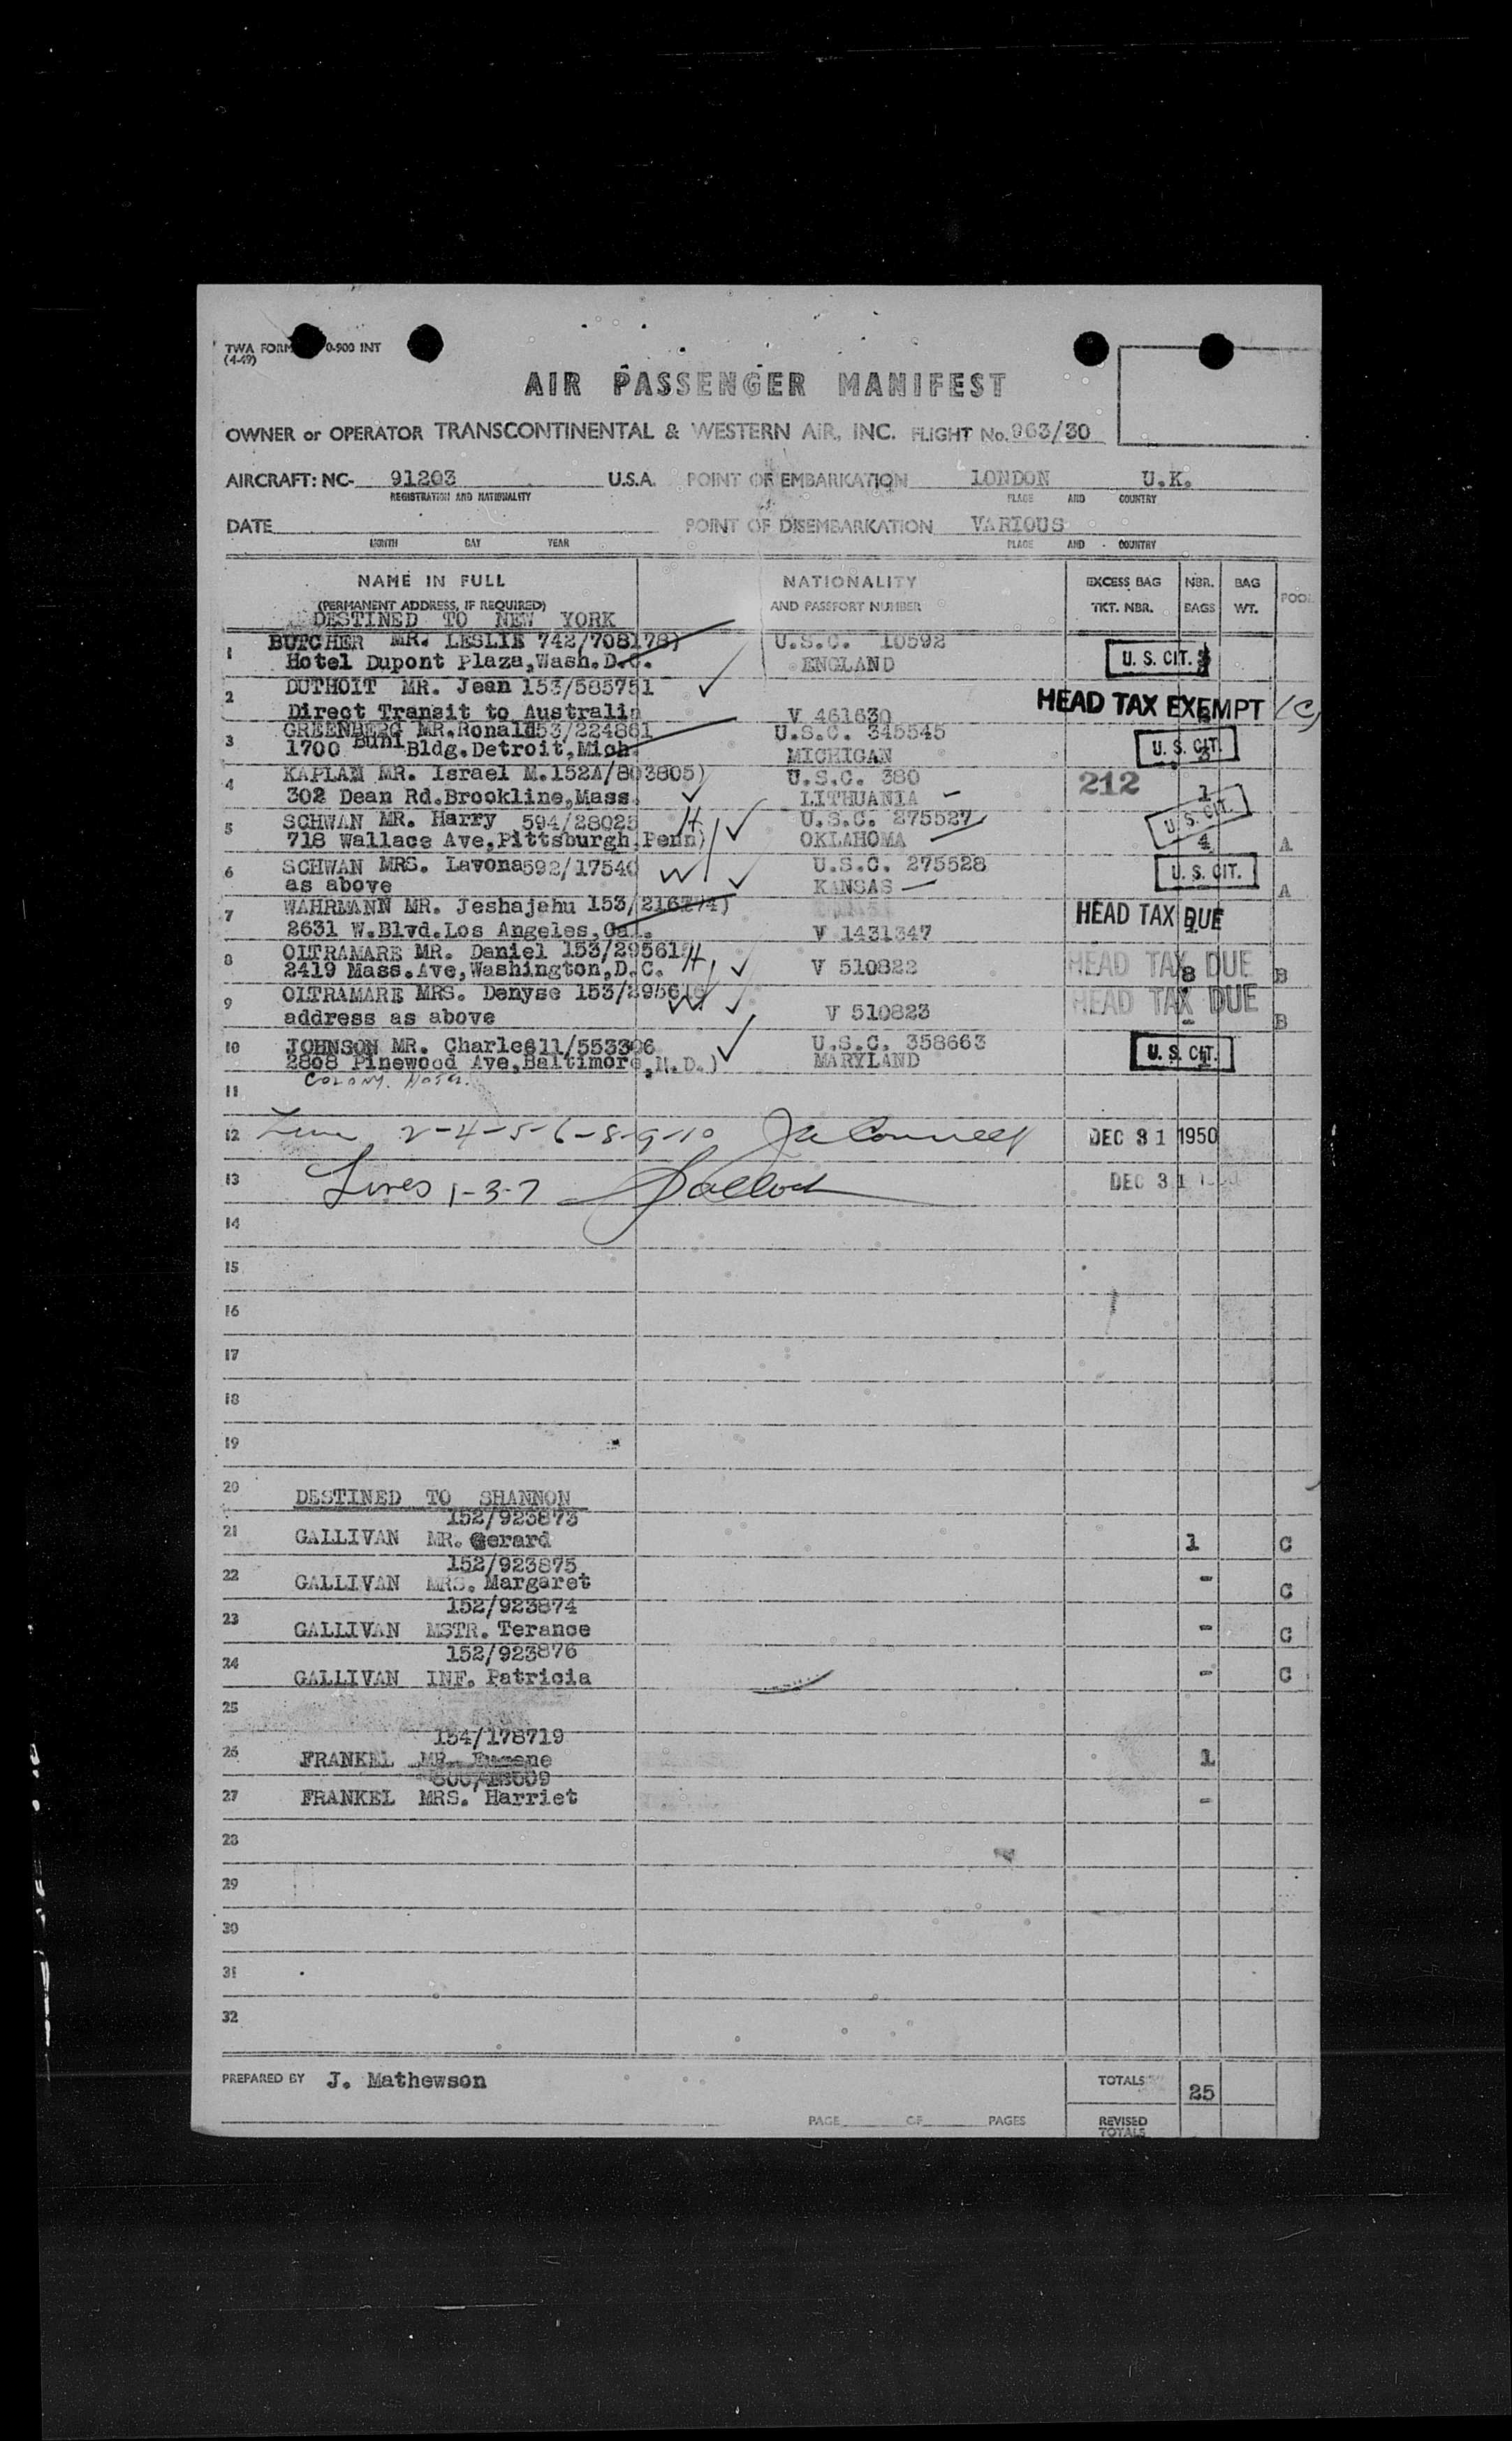 TWA FORM 0-900 INT
(4-49)
AIR PASSENGER MANIFEST
OWNER or OPERATOR TRANSCONTINENTAL & WESTERN AIR, INC. FLIGHT No. 963/30
AIRCRAFT: NC- 91203 U.S.A. POINT OF EMBARKATION LONDON U.K.
REGISTRATION AND NATIONALITY PLACE AND COUNTRY
DATE POINT OF DISEMBARKATION VARIOUS
MONTH DAY YEAR PLACE AND COUNTRY
NAME IN FULL NATIONALITY EXCESS BAG NBR. BAG
(PERMANENT ADDRESS, IF REQUIRED) AND PASSPORT NUMBER TKT. NBR. BAGS WT. POOL
DESTINED TO NEW YORK
1 BUTCHER MR. LESLIE 742/708178) U.S.C. 10592
Hotel Dupont Plaza,Wash.D.C. ENGLAND U. S. CIT.
2 DUTHOIT MR. Jean 153/585751
Direct Transit to Australia V 461630 HEAD TAX EXEMPT (C)
3 GREENBERG MR.Ronald153/224861 U.S.C. 345545
1700 Buhl Bldg.Detroit,Mich. MICHIGAN U. S. CIT. 3
4 KAPLAN MR. Israel M.152A/803805) U.S.C. 380 212
302 Dean Rd.Brookline,Mass. LITHUANIA 1
5 SCHWAN MR. Harry 594/28025 H U.S.C. 275527 U. S. CIT.
718 Wallace Ave,Pittsburgh,Penn) OKLAHOMA 4 A
6 SCHWAN MRS. Lavona592/17540 W U.S.C. 275528 U. S. CIT.
as above KANSAS A
7 WAHRMANN MR. Jeshajahu 153/ HEAD TAX DUE
2631 W.Blvd.Los Angeles,Cal. V 1431347
8 OLTRAMARE MR. Daniel 153/29561 H HEAD TAX DUE
2419 Mass.Ave,Washington,D.C. V 510822 8 B
9 OLTRAMARE MRS. Denyse 153/295616 W HEAD TAX DUE
address as above V 510823 - B
10 JOHNSON MR. Charles 11/553306 U.S.C. 358663
2808 Pinewood Ave,Baltimore,M.D.) MARYLAND U. S. CIT.
COLONY. HOTEL.
11
12 2-4-5-6-8-9-10 DEC 31 1950
13 Lines 1-3-7 DEC 31
14
15
16
17
18
19
20 DESTINED TO SHANNON
152/923873
21 GALLIVAN MR. Gerard 1 C
152/923875
22 GALLIVAN MRS. Margaret - C
152/923874
23 GALLIVAN MSTR. Terance - C
152/923876
24 GALLIVAN INF. Patricia - C
25
154/178719
26 FRANKEL MR. Eugene 1
27 FRANKEL MRS. Harriet -
28
29
30
31
32
PREPARED BY J. Mathewson TOTALS 25
PAGE OF PAGES REVISED
TOTALS